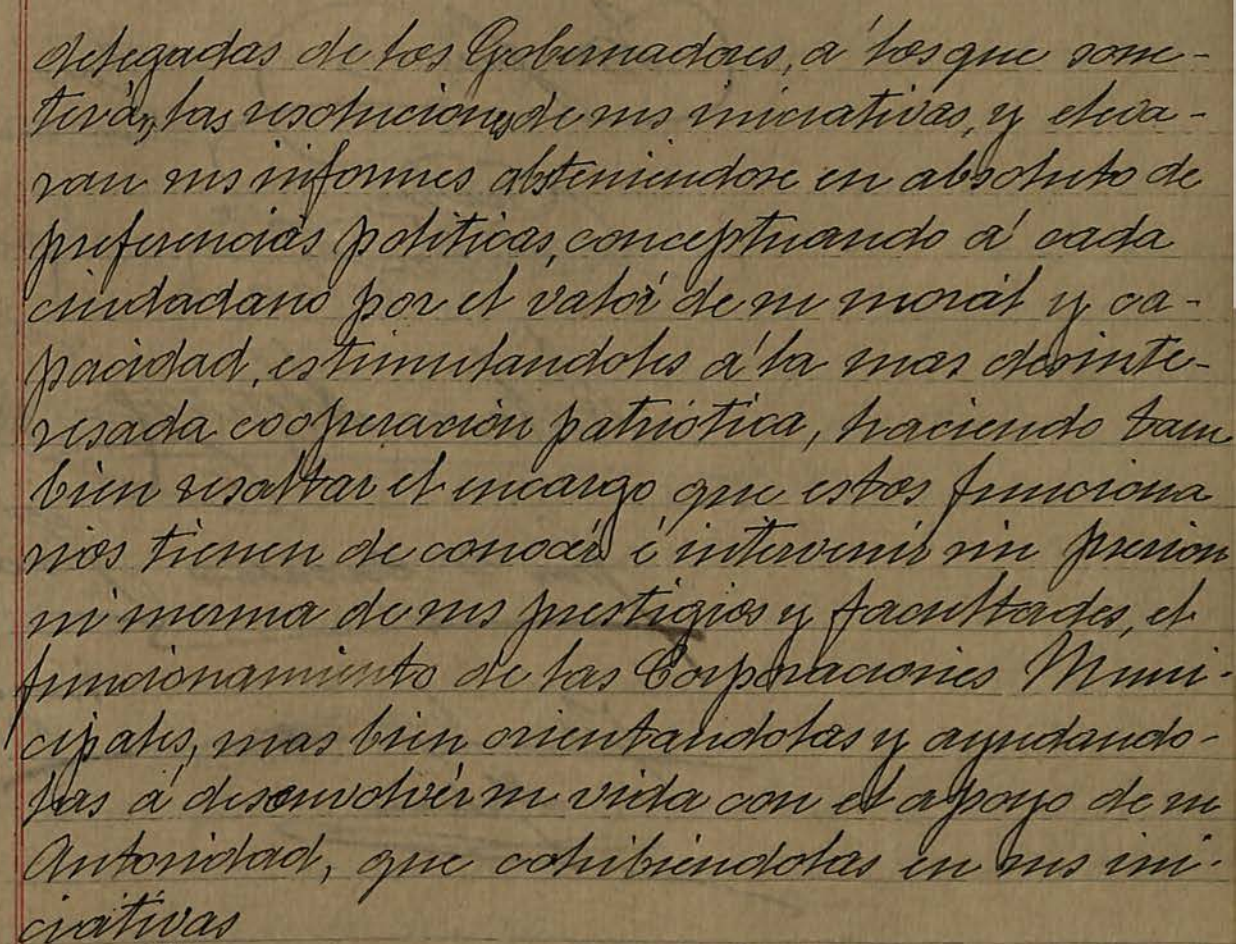 delegadas de los Gobernadores, a' los que some-
terán, las resoluciones de sus iniciativas, y eleva-
ran sus informes absteniendose en absoluto de
preferencias políticas, conceptuando a' cada
ciudadano por el valór de su morál y ca-
pacidad, estimulandoles a' la mas desinte-
resada cooperación patriótica, haciendo tam
bien resaltar el encargo que estos funciona
rios tienen de conocér é intervenir sin presion
ni merma de sus prestigios y facultades, el
funcionamiento de las Corporaciones Muni-
cipales, mas bien orientandolas y ayudando-
las a desenvolvér su vida con el apoyo de su
Autoridad, que cohibiéndolas en sus ini-
ciativas